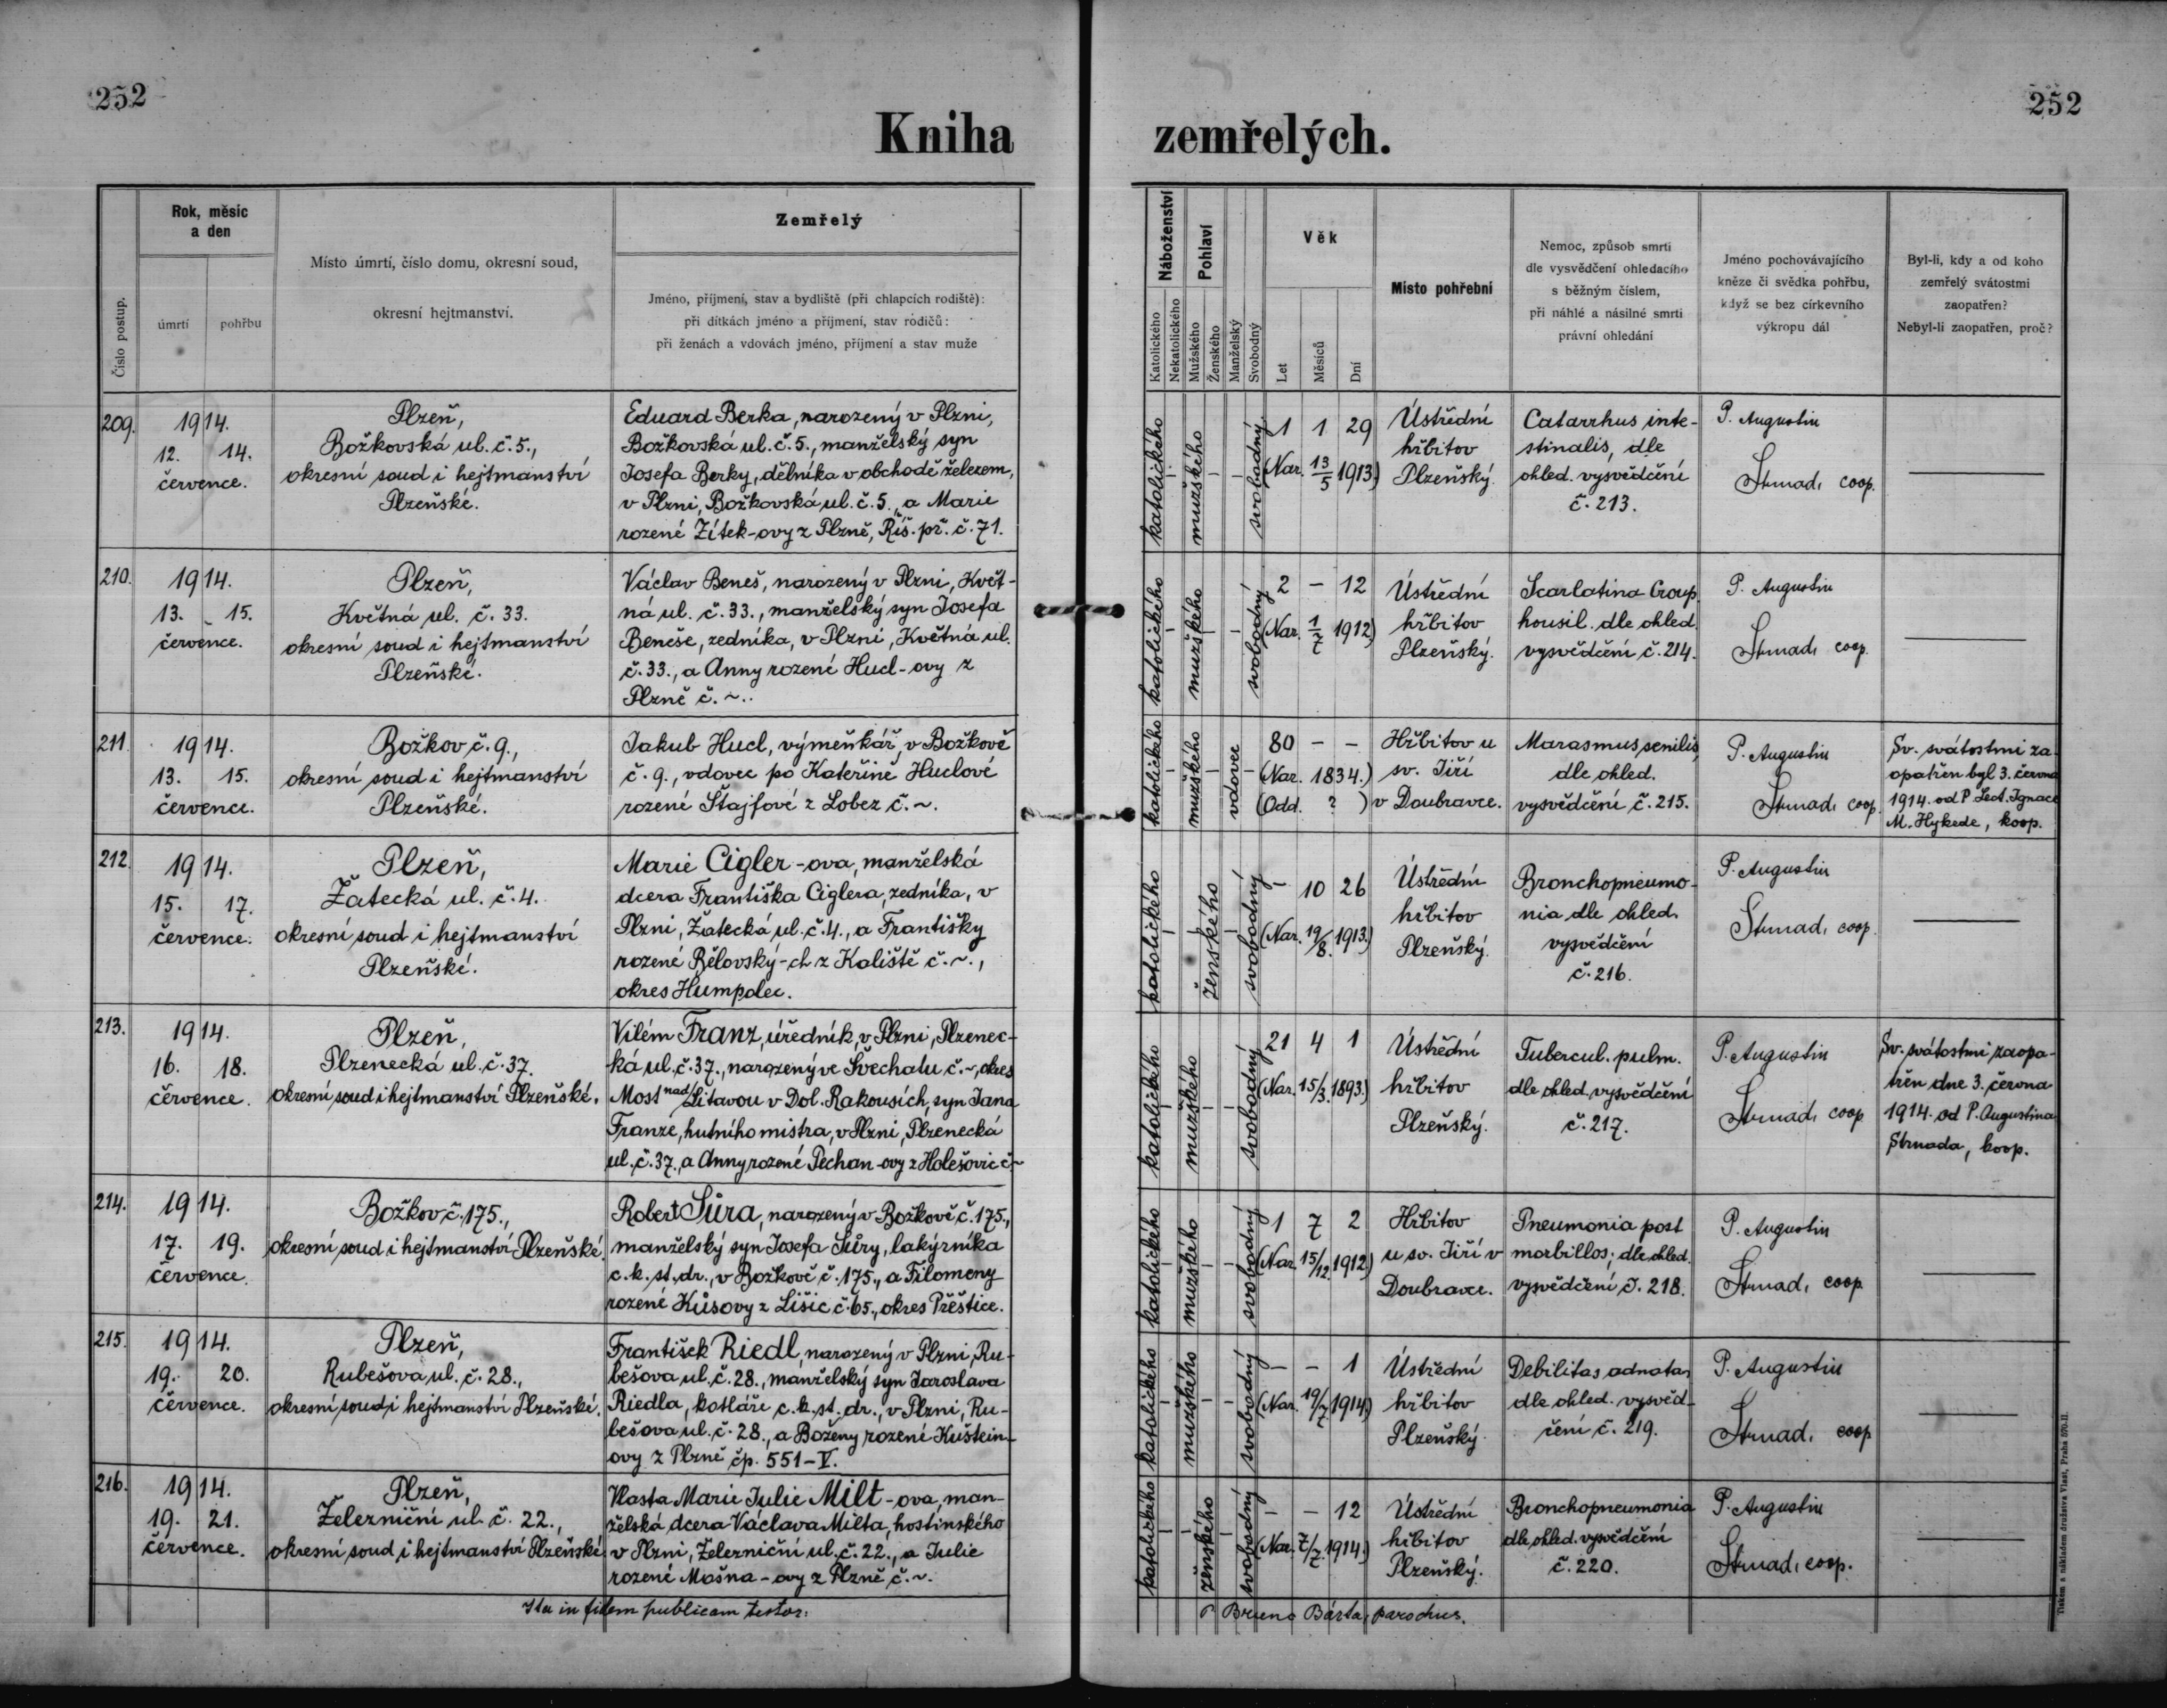 252
252
Kniha zemřelých.
Číslo postup.
Rok, měsíc
a den
úmrtí
pohřbu
Místo úmrtí, číslo domu, okresní soud,
okresní hejtmanství.
Zemřelý
Jméno, příjmení, stav a bydliště (při chlapcích rodiště):
při dítkách jméno a příjmení, stav rodičů:
při ženách a vdovách jméno, příjmení a stav muže
Náboženství
Katolického
Nekatolického
Pohlaví
Mužského
Ženského
Manželský
Svobodný
Věk
Let
Měsíců
Dní
Místo pohřební
Nemoc, způsob smrti
dle vysvědčení ohledacího
s běžným číslem,
při náhlé a násilné smrti
právní ohledání
Jméno pochovávajícího
kněze či svědka pohřbu,
když se bez církevního
výkropu dál
Byl-li, kdy a od koho
zemřelý svátostmi
zaopatřen?
Nebyl-li zaopatřen, proč?
209.
1914.
12. 14.
července.
Plzeň,
Božkovská ul. č. 5.,
okresní soud i hejtmanství
Plzeňské.
Eduard Berka, narozený v Plzni,
Božkovská ul. č. 5., manželský syn
Josefa Berky, dělníka v obchodě železem,
v Plzni, Božkovská ul. č. 5., a Marie
rozené Zítek-ovy z Plzně, Říš. př. č. 71.
katolického
-
mužského
-
-
svobodný
1 1 29
(Nar. 13/5 1913)
Ústřední
hřbitov
Plzeňský.
Catarrhus inte-
stinalis, dle
ohled. vysvědčení
č. 213.
P. Augustin
Strnad, coop.
210.
1914.
13. 15.
července.
Plzeň,
Květná ul. č. 33.
okresní soud i hejtmanství
Plzeňské.
Václav Beneš, narozený v Plzni, Květ-
ná ul. č. 33., manželský syn Josefa
Beneše, zedníka, v Plzni, Květná ul.
č. 33., a Anny rozené Hucl-ovy z
Plzně č. ~..
katolického
-
mužského
-
-
svobodný
2 - 12
(Nar. 1/7 1912)
Ústřední
hřbitov
Plzeňský.
Scarlatina Croup.
housil. dle ohled.
vysvědčení č. 214.
P. Augustin
Strnad, coop.
211.
1914.
13. 15.
července.
Božkov č. 9.,
okresní soud i hejtmanství
Plzeňské.
Jakub Hucl, výměnkář, v Božkově
č. 9., vdovec po Kateřině Huclové
rozené Štajfové z Lobez č. ~.
katolického
-
mužského
-
vdovec
-
80 - -
(Nar. 1834.)
(Odd. ? )
Hřbitov u
sv. Jiří
v Doubravce.
Marasmus senilis,
dle ohled.
vysvědčení č. 215.
P. Augustin
Strnad, coop.
Sv. svátostmi za-
opatřen byl 3. června
1914. od P. Leop. Ignace
M. Hykede, koop.
212.
1914.
15. 17.
července.
Plzeň,
Žatecká ul. č. 4.
okresní soud i hejtmanství
Plzeňské.
Marie Cigler-ova, manželská
dcera Františka Ciglera, zedníka, v
Plzni, Žatecká ul. č. 4., a Františky
rozené Bělovský-ch z Kaliště č. ~.,
okres Humpolec.
katolického
-
-
ženského
-
svobodný
- 10 26
(Nar. 19/8. 1913.)
Ústřední
hřbitov
Plzeňský.
Bronchopneumo-
nia dle ohled.
vysvědčení
č. 216.
P. Augustin
Strnad, coop.
213.
1914.
16. 18.
července.
Plzeň,
Plzenecká ul. č. 37.
okresní soud i hejtmanství Plzeňské.
Vilém Franz, úředník, v Plzni, Plzenec-
ká ul. č. 37., narozený ve Švechatu č. ~, okres
Most nad/Litavou v Dol. Rakousích, syn Jana
Franze, hutního mistra, v Plzni, Plzenecká
ul. č. 37., a Anny rozené Pechan-ovy z Holešovic č. ~
katolického
-
mužského
-
-
svobodný
21 4 1
(Nar. 15/3. 1893.)
Ústřední
hřbitov
Plzeňský.
Tubercul. pulm.
dle ohled. vysvědčení
č. 217.
P. Augustin
Strnad, coop
Sv. svátostmi zaopa-
třen dne 3. června
1914. od P. Augustina
Strnada, koop.
214.
1914.
17. 19.
července.
Božkov č. 175.,
okresní soud i hejtmanství Plzeňské.
Robert Sůra, narozený v Božkově č. 175.,
manželský syn Josefa Sůry, lakýrníka
c. k. st. dr., v Božkově č. 175., a Filomeny
rozené Kůsovy z Lišic č. 65., okres Přeštice.
katolického
-
mužského
-
-
svobodný
1 7 2
(Nar. 15/12. 1912)
Hřbitov
u sv. Jiří v
Doubravce.
Pneumonia post
morbillos, dle ohled.
vysvědčení č. 218.
P. Augustin
Strnad, coop.
215.
1914.
19. 20.
července.
Plzeň,
Rubešova ul. č. 28.,
okresní soud i hejtmanství Plzeňské.
František Riedl, narozený v Plzni, Ru-
bešova ul. č. 28., manželský syn Jaroslava
Riedla, kotláře c. k. st. dr., v Plzni, Ru-
bešova ul. č. 28., a Boženy rozené Kuštein-
ovy z Plzně čp. 551-V.
katolického
-
mužského
-
-
svobodný
- - 1
(Nar. 19/7 1914)
Ústřední
hřbitov
Plzeňský.
Debilitas adnata,
dle ohled. vysvěd-
čení č. 219.
P. Augustin
Strnad, coop
216.
1914.
19. 21.
července.
Plzeň,
Železniční ul. č. 22.,
okresní soud i hejtmanství Plzeňské.
Vlasta Marie Julie Milt-ova, man-
želská dcera Václava Milta, hostinského
v Plzni, Železniční ul. č. 22., a Julie
rozené Mošna-ovy z Plzně č. ~.
katolického
-
-
ženského
-
svobodný
- - 12
(Nar. 7/7. 1914)
Ústřední
hřbitov
Plzeňský.
Bronchopneumonia
dle ohled. vysvědčení
č. 220.
P. Augustin
Strnad, coop.
Ita in fidem publicam testor:
P Bruno Bárta, parochus.
Tiskem a nákladem družstva Vlasť, Praha 570-II.